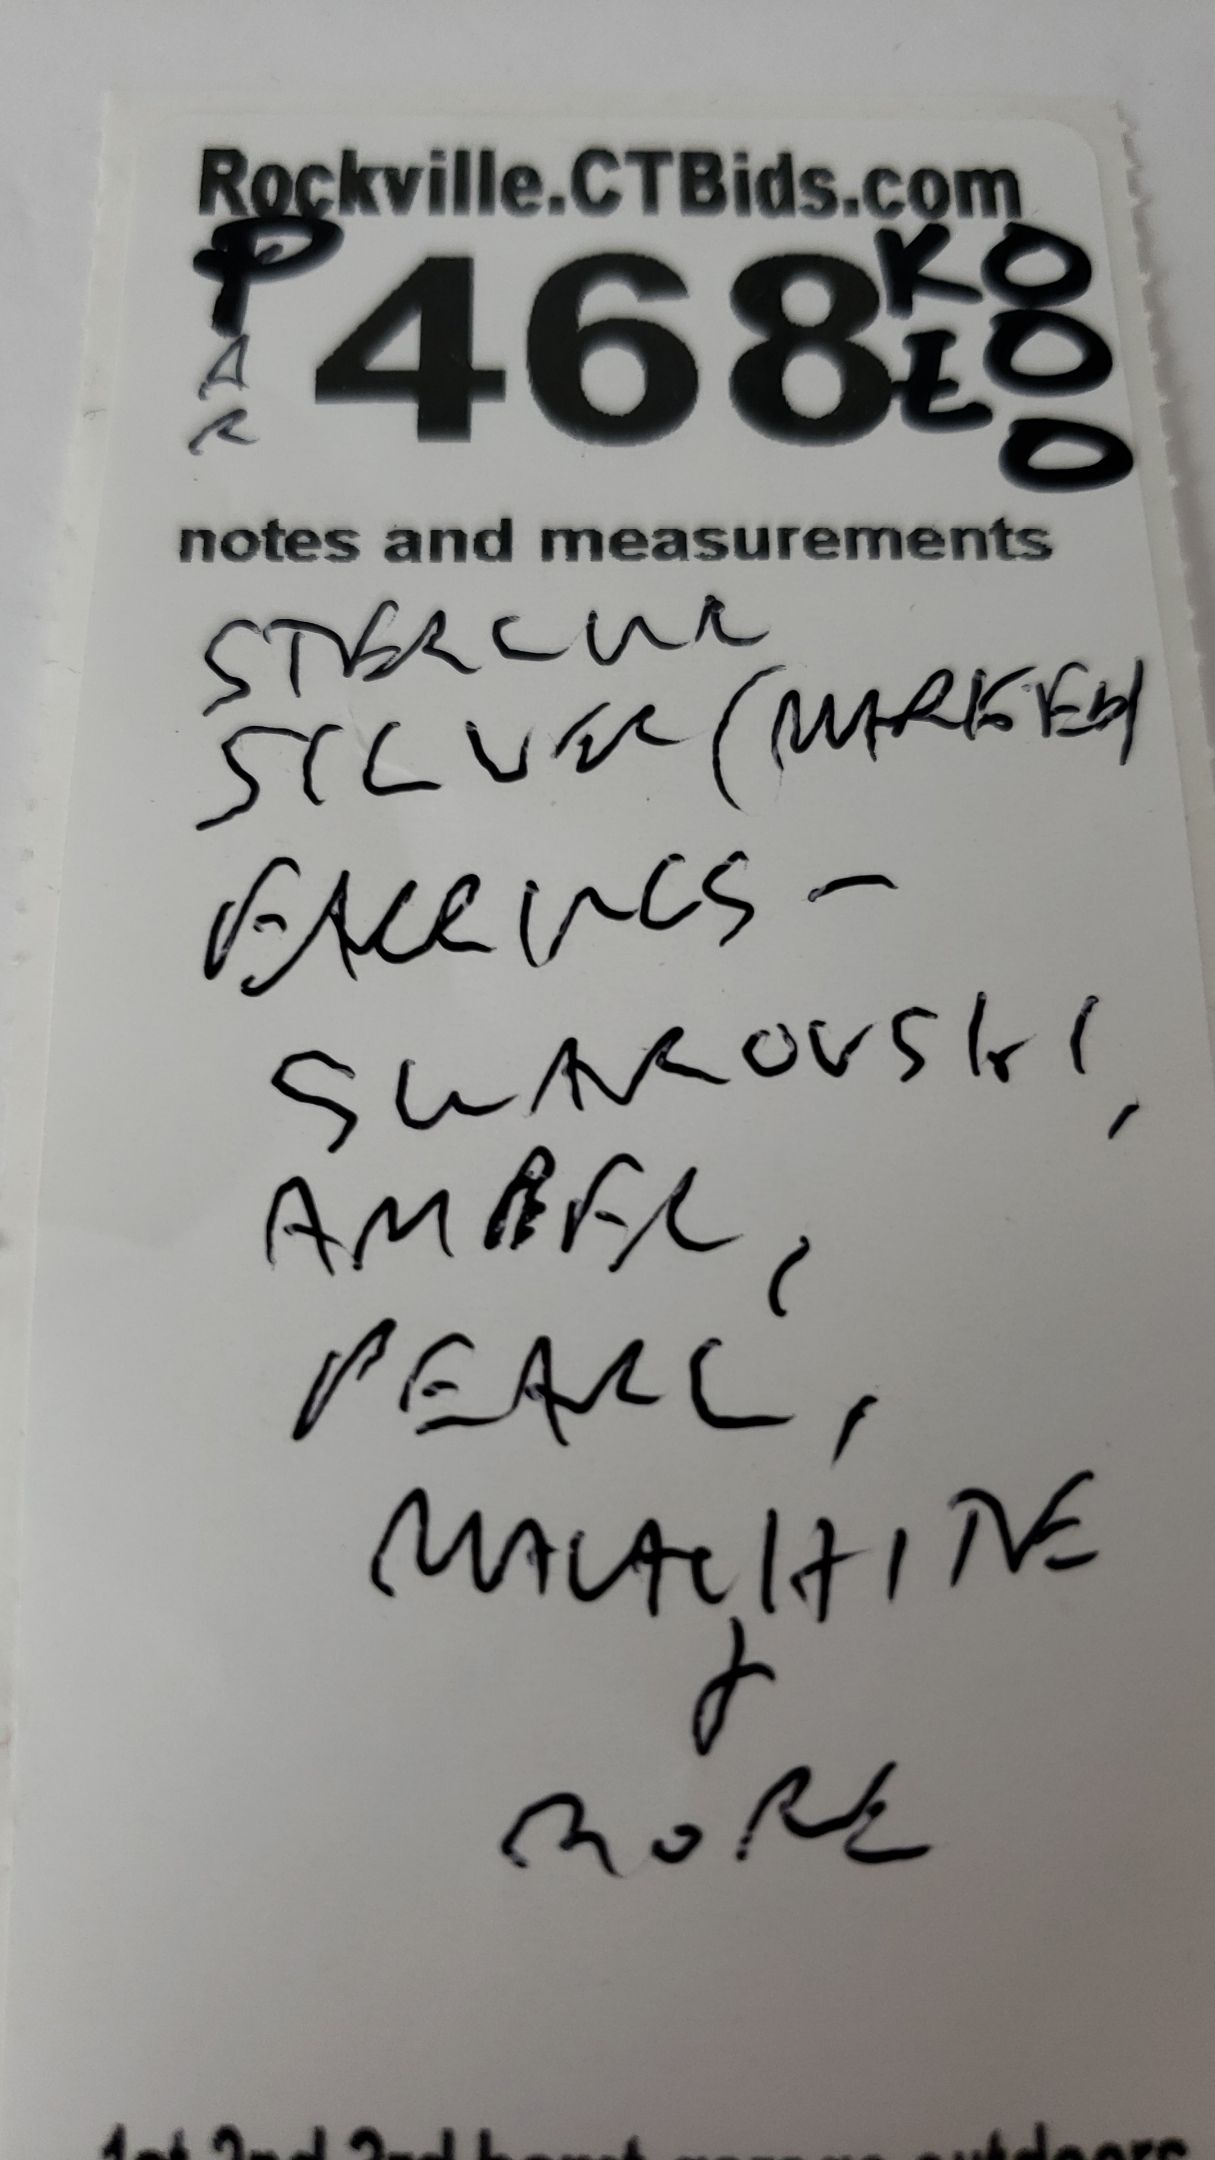 Rockville.CTBids.com
PAR 468 KE OOO
notes and measurements
STERLING
SILVER (MARKED)
EARRINGS -
SWAROVSKI,
AMBER,
PEARL,
MALACHITE
+
MORE
1st 2nd 3rd bsmt garage outdoors